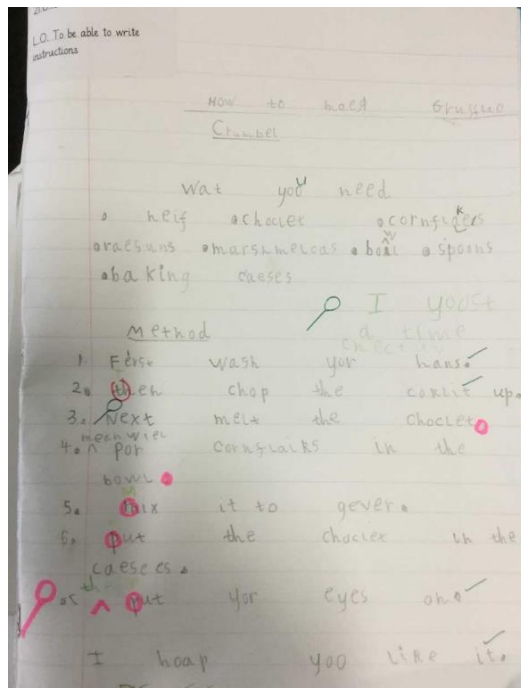 L.O. To be able to write
instructions
How to maek Grussuo
Crumbel
Wat you need
• helf • choclet • cornflakes
• raesuns • marshmeloas • bowl • spoons
• baking caeses
I yoost
a time
conective
Method
1. Ferst wash yor hans.
2. then chop the conlit up.
3. Next melt the choclet
meanwiel
4. por cornflaiks in the
bowl
5. mix it to gever.
6. put the choclex in the
caesees.
put yor eyes on.
I hoap yoo like it.